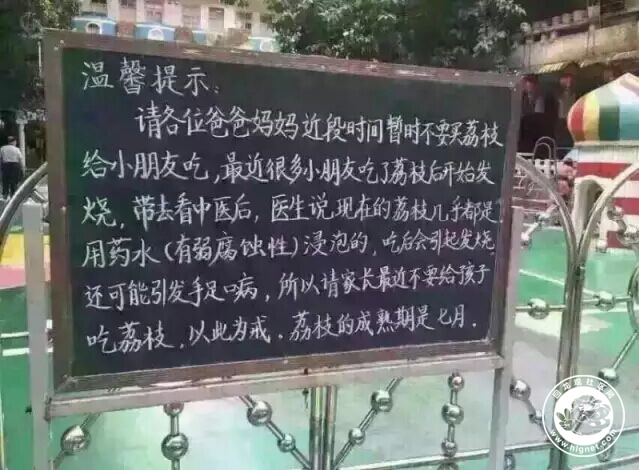 温馨提示:
请各位爸爸妈妈近段时间暂时不要买荔枝
给小朋友吃,最近很多小朋友吃了荔枝后开始发
烧,带去看中医后,医生说现在的荔枝几乎都是
用药水(有弱腐蚀性)浸泡的,吃后会引起发烧
还可能引发手足口病,所以请家长最近不要给孩子
吃荔枝,以此为戒.荔枝的成熟期是七月.
回龙观社区网
www.hlgnet.com